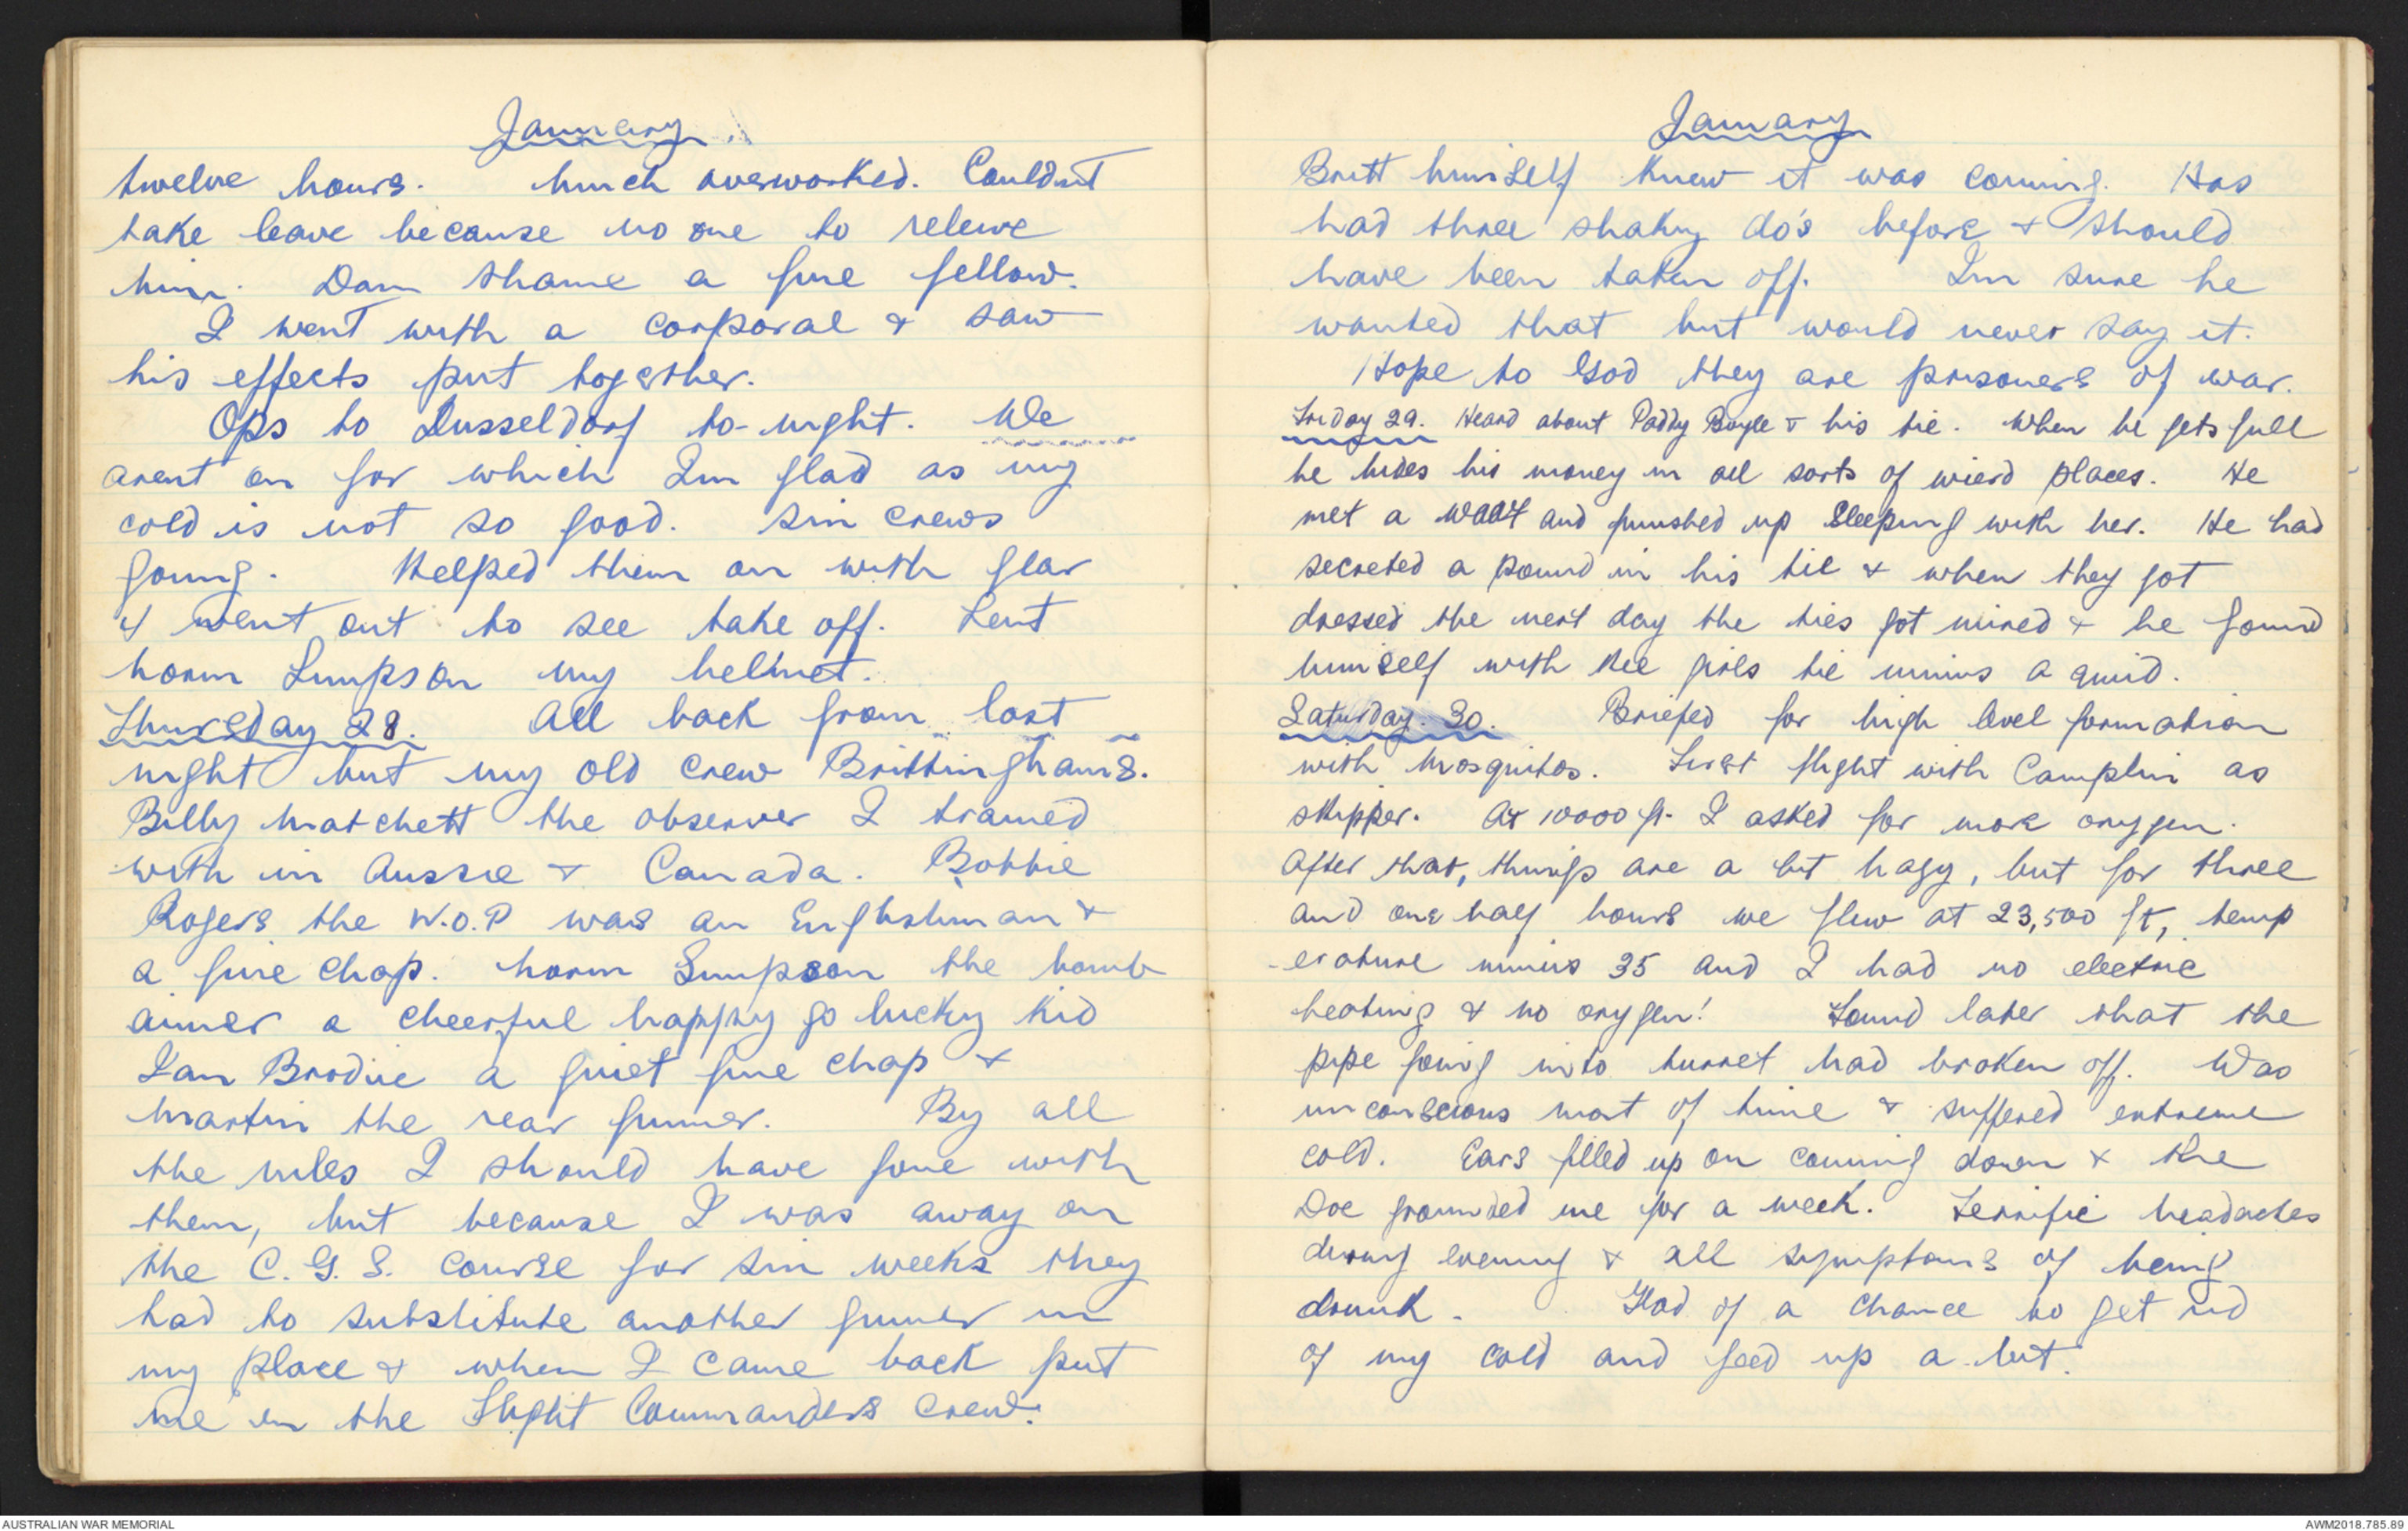 January
twelve hours. Much overworked. Couldn't
take leave because no one to releive
him. Dam shame a fine fellow.
I went with a corporal & saw
his effects put together.
Ops to Dusseldorf to-night. We
arent on for which Im glad as my
cold is not so good. Six crews
going. Helped them on with gear
& went out to see take off. Lent
Norm Simpson my helmet.
Thursday 28. All back from last
night but my old crew Brittinghams.
Billy Matchett the observer I trained
with in Aussie & Canada. Bobbie
Rogers the W.O.P was an Englishman &
a fine chap. Norm Simpson the bomb
aimer a cheerful happy go lucky kid
Ian Brodie a quiet fine chap &
Martin the rear gunner. By all
the rules I should have gone with
them, but because I was away on
the C.G.S. course for six weeks they
had to substitute another gunner in
my place & when I came back put
me in the Flight Commanders crew.
January
Britt himself knew it was coming. Has
had three shaky do's before & should
have been taken off. Im sure he
wanted that but would never say it.
Hope to God they are prisoners of war.
Friday 29. Heard about Paddy Boyle & his tie. When he gets full
he hides his money in all sorts of wierd places. He
met a WAAF and finished up sleeping with her. He had
secreted a pound in his tie & when they got
dressed the next day the ties got mixed & he found
himself with the girls tie minus a quid.
Saturday. 30. Briefed for high level formation
with Mosquitos. First flight with Camplin as
skipper. At 10000 ft. I asked for more oxygen.
After that, things are a bit hazy, but for three
and one half hours we flew at 23,500 ft, temp
-erature minus 35 and I had no electric
heating & no oxygen! Found later that the
pipe going into turret had broken off. Was
unconscious most of time & suffered extreme
cold. Ears filled up on coming down & the
Doc grounded me for a week. Terrific headaches
during evening & all symptoms of being
drunk. Glad of a chance to get rid
of my cold and feed up a bit.
AUSTRALIAN WAR MEMORIAL
AWM2018.785.89